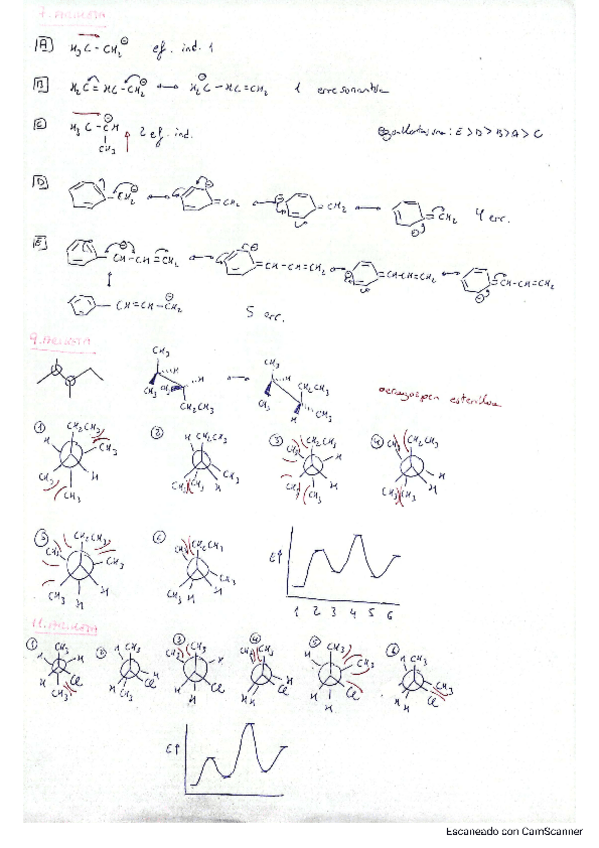 7. ARIKETA
A) H₃C–CH₂⊖ ef. ind. 1
B) H₂C=HC–CH₂⊖ ↔ H₂C⊖–HC=CH₂ 1 erresonantzia
C) H₃C–CH⊖ 2 ef. ind.
CH₃
Egonkortasuna: E>D>B>A>C
D) CH₂⊖ ↔ =CH₂ ↔ =CH₂ ↔ =CH₂ 4 err.
E) CH–CH=CH₂ ↔ =CH–CH=CH₂ ↔ =CH–CH=CH₂ ↔ =CH–CH=CH₂
CH=CH–CH₂⊖ 5 err.
9. ARIKETA
CH₃ CH₃
H H CH₂CH₃
CH₃ CH₃ CH₃ CH₃
CH₂CH₃ H
eragozpen esterikoa
① ② ③ ④
CH₂CH₃ CH₂CH₃ CH₂CH₃ CH₂CH₃
H CH₃ H CH₃ H CH₃
CH₃ H CH₃ H CH₃ H H
CH₃ CH₃ CH₃ CH₃
⑤ ⑥
CH₂CH₃ CH₂CH₃
CH₃ CH₃ CH₃
CH₃ H H H H CH₃
E↑
1 2 3 4 5 6
11. ARIKETA
① ② ③ ④ ⑤ ⑥
CH₃ CH₃ CH₃ CH₃ CH₃ CH₃
H H CH₃ H CH₃ H CH₃ H
H Cl H Cl H Cl H Cl H Cl H CH₃
CH₃ CH₃ H H H H Cl
E↑
Escaneado con CamScanner